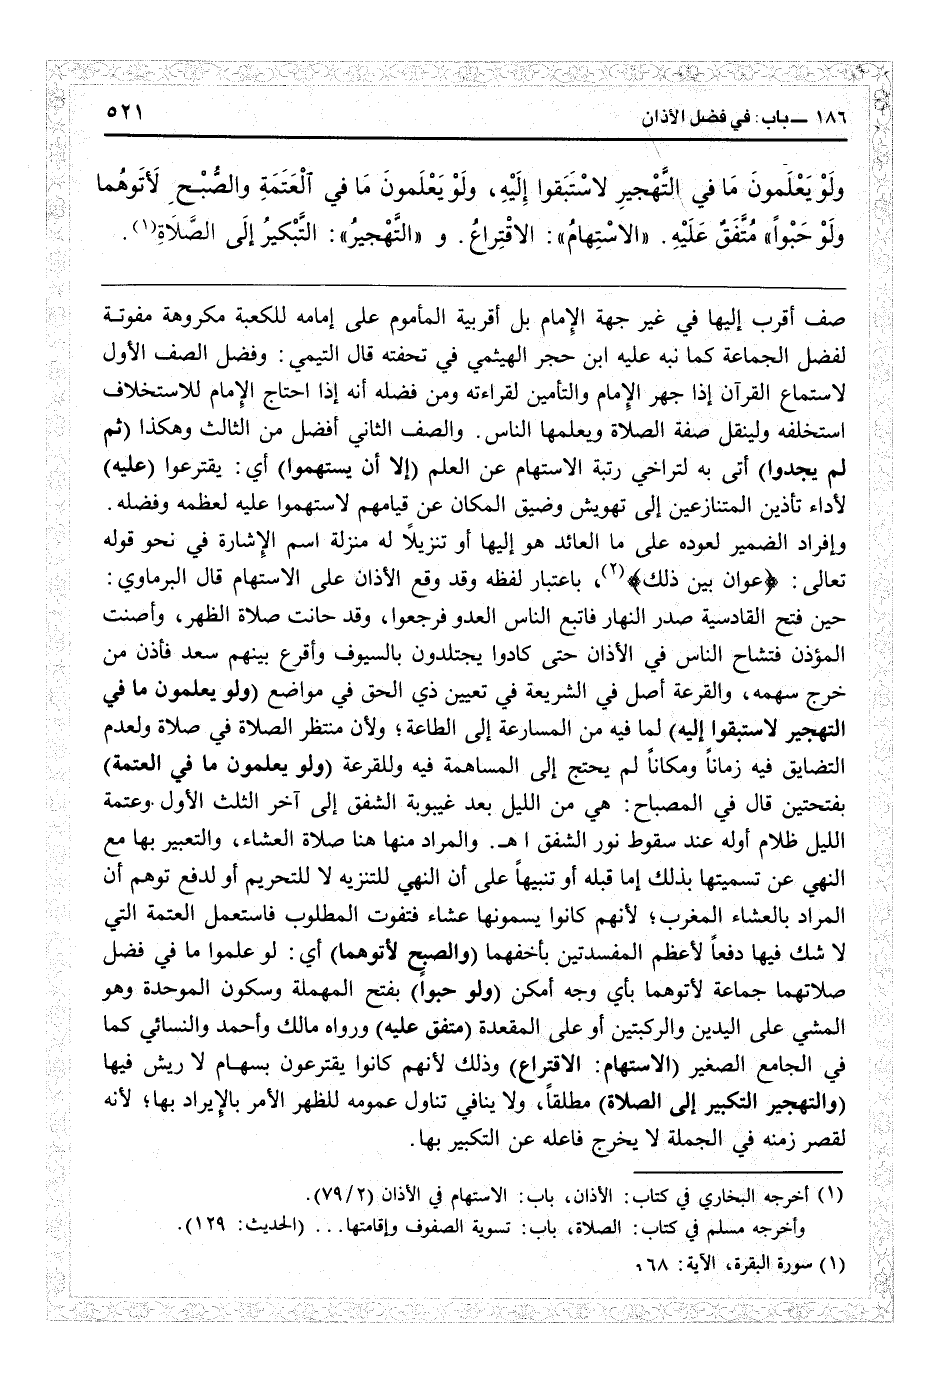 ١٨٦ ــ باب: في فضل الأذان
٥٢١
ولَوْ يَعْلَمونَ مَا في التَّهْجِيرِ لاسْتَبَقوا إِلَيْهِ، ولَوْ يَعْلَمونَ مَا في ٱلْعَتَمَةِ والصُّبْحِ لَأتَوهُما
ولَوْ حَبْواً» مُتَّفَقٌ عَلَيْهِ. «الاسْتِهامُ»: الاقْتِراعُ. و «التَّهْجِيرُ»: التَّبْكيرُ إلَى الصَّلَاةِ(١).
صف أقرب إليها في غير جهة الإمام بل أقربية المأموم على إمامه للكعبة مكروهة مفوتة
لفضل الجماعة كما نبه عليه ابن حجر الهيثمي في تحفته قال التيمي: وفضل الصف الأول
لاستماع القرآن إذا جهر الإمام والتأمين لقراءته ومن فضله أنه إذا احتاج الإمام للاستخلاف
استخلفه ولينقل صفة الصلاة ويعلمها الناس. والصف الثاني أفضل من الثالث وهكذا (ثم
لم يجدوا) أتى به لتراخي رتبة الاستهام عن العلم (إلا أن يستهموا) أي: يقترعوا (عليه)
لأداء تأذين المتنازعين إلى تهويش وضيق المكان عن قيامهم لاستهموا عليه لعظمه وفضله.
وإفراد الضمير لعوده على ما العائد هو إليها أو تنزيلاً له منزلة اسم الإشارة في نحو قوله
تعالى: ﴿عوان بين ذلك﴾(٢)، باعتبار لفظه وقد وقع الأذان على الاستهام قال البرماوي:
حين فتح القادسية صدر النهار فاتبع الناس العدو فرجعوا، وقد حانت صلاة الظهر، وأصنت
المؤذن فتشاح الناس في الأذان حتى كادوا يجتلدون بالسيوف وأقرع بينهم سعد فأذن من
خرج سهمه، والقرعة أصل في الشريعة في تعيين ذي الحق في مواضع (ولو يعلمون ما في
التهجير لاستبقوا إليه) لما فيه من المسارعة إلى الطاعة؛ ولأن منتظر الصلاة في صلاة ولعدم
التضايق فيه زماناً ومكاناً لم يحتج إلى المساهمة فيه وللقرعة (ولو يعلمون ما في العتمة)
بفتحتين قال في المصباح: هي من الليل بعد غيبوبة الشفق إلى آخر الثلث الأول وعتمة
الليل ظلام أوله عند سقوط نور الشفق ا هـ. والمراد منها هنا صلاة العشاء، والتعبير بها مع
النهي عن تسميتها بذلك إما قبله أو تنبيهاً على أن النهي للتنزيه لا للتحريم أو لدفع توهم أن
المراد بالعشاء المغرب؛ لأنهم كانوا يسمونها عشاء فتفوت المطلوب فاستعمل العتمة التي
لا شك فيها دفعاً لأعظم المفسدتين بأخفهما (والصبح لأتوهما) أي: لو علموا ما في فضل
صلاتهما جماعة لأتوهما بأي وجه أمكن (ولو حبواً) بفتح المهملة وسكون الموحدة وهو
المشي على اليدين والركبتين أو على المقعدة (متفق عليه) ورواه مالك وأحمد والنسائي كما
في الجامع الصغير (الاستهام: الاقتراع) وذلك لأنهم كانوا يقترعون بسهام لا ريش فيها
(والتهجير التكبير إلى الصلاة) مطلقاً، ولا ينافي تناول عمومه للظهر الأمر بالإيراد بها؛ لأنه
لقصر زمنه في الجملة لا يخرج فاعله عن التكبير بها.
(١) أخرجه البخاري في كتاب: الأذان، باب: الاستهام في الأذان (٧٩/٢).
وأخرجه مسلم في كتاب: الصلاة، باب: تسوية الصفوف وإقامتها... (الحديث: ١٢٩).
(١) سورة البقرة، الآية: ٦٨